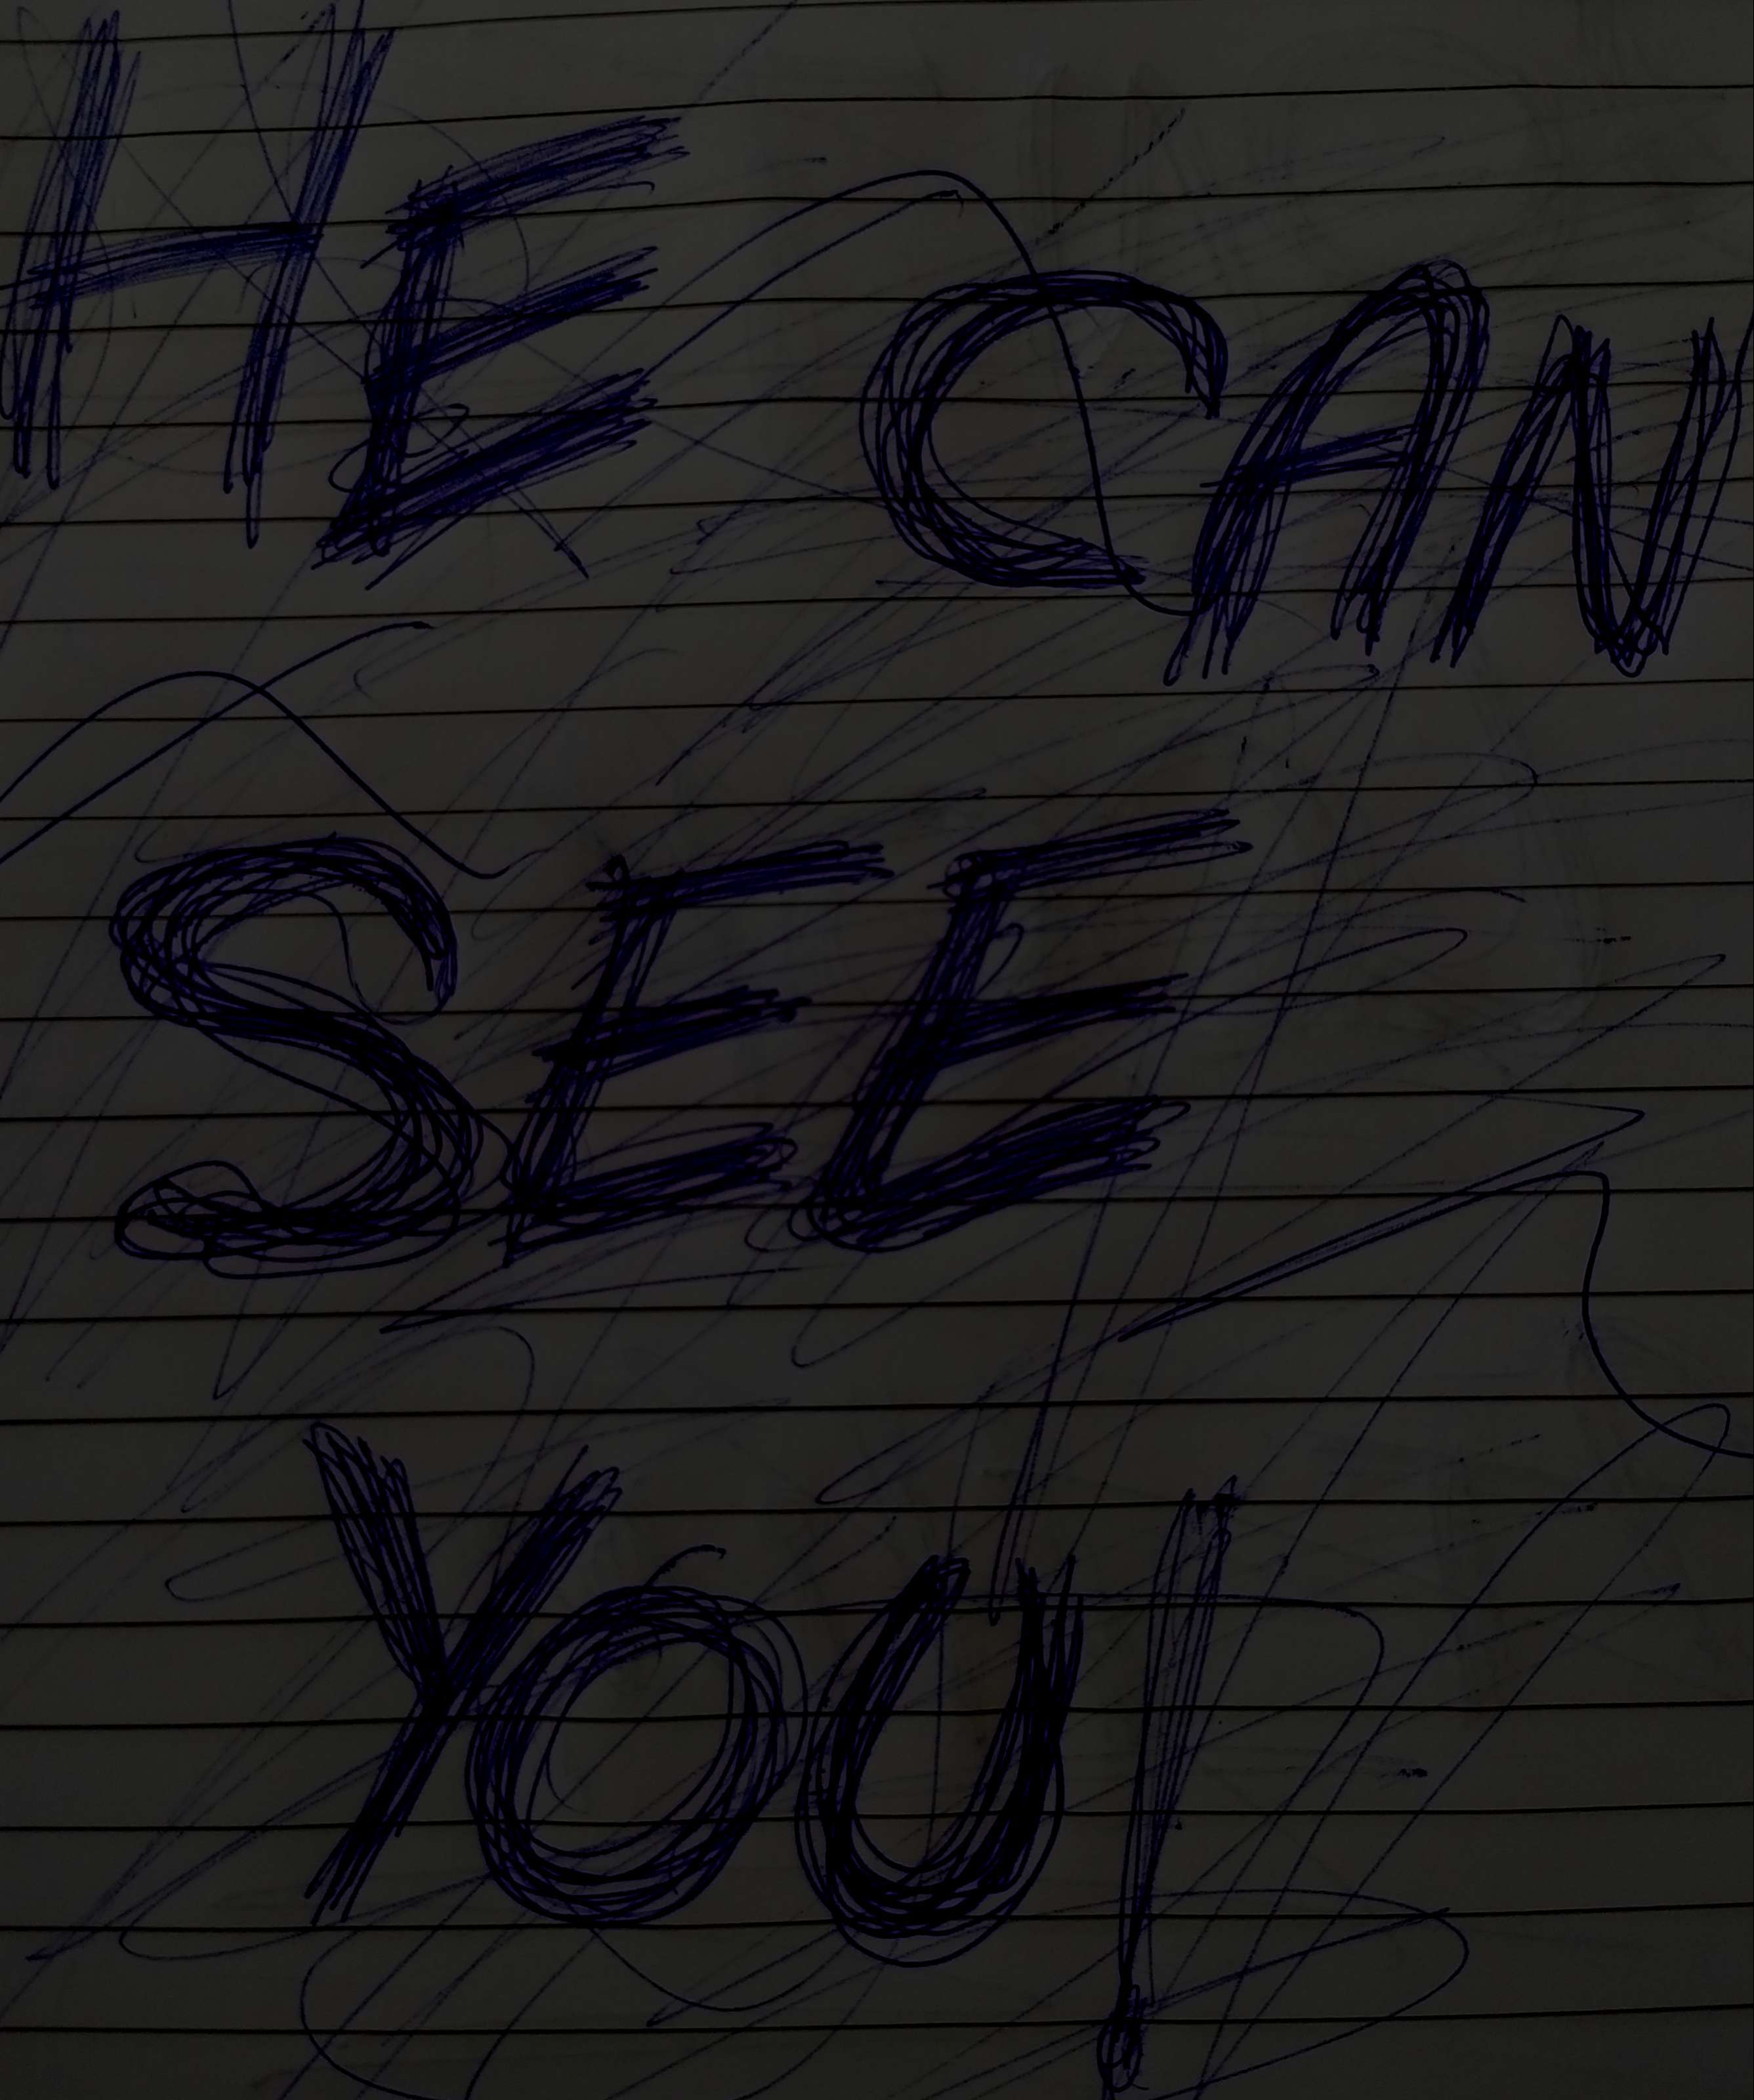 HE CAN
SEE
YOU!